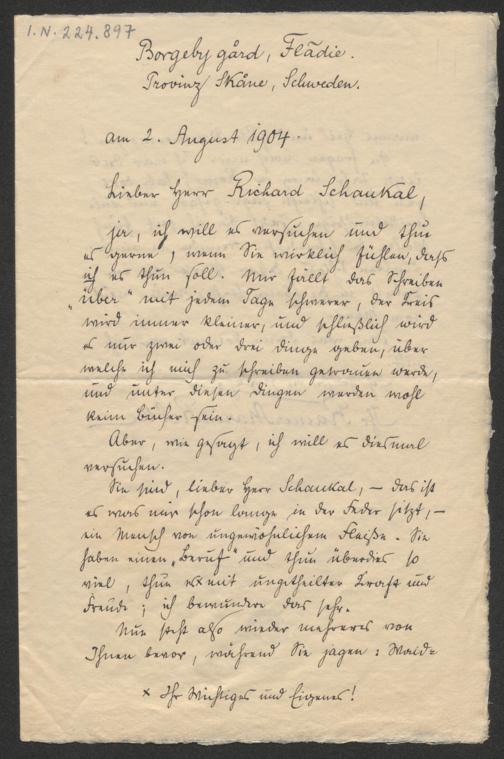 I.N. 224.897
Borgeby gård, Flädie.
Provinz Skåne, Schweden.
am 2. August 1904.
Lieber Herr Richard Schaukal,
ja, ich will es versuchen und thu
es gerne, wenn Sie wirklich fühlen, dass
ich es thun soll. Mir fällt das Schreiben
"über" mit jedem Tage schwerer, der Kreis
wird immer kleiner, und schließlich wird
es nur zwei oder drei Dinge geben, über
welche ich mich zu schreiben getrauen werde,
und unter diesen Dingen werden wohl
keine Bücher sein.
Aber, wie gesagt, ich will es diesmal
versuchen.
Sie sind, lieber Herr Schaukal, – das ist
es was mir schon lange in der Feder sitzt, –
ein Mensch von ungewöhnlichem Fleiße. Sie
haben einen „Beruf" und thun überdies so
viel, thun es x mit ungetheilter Kraft und
Freude; ich bewundere das sehr.
Nun steht also wieder mehreres von
Ihnen bevor, während Sie jagen: Waid=
x Ihr Wichtiges und Eigenes!